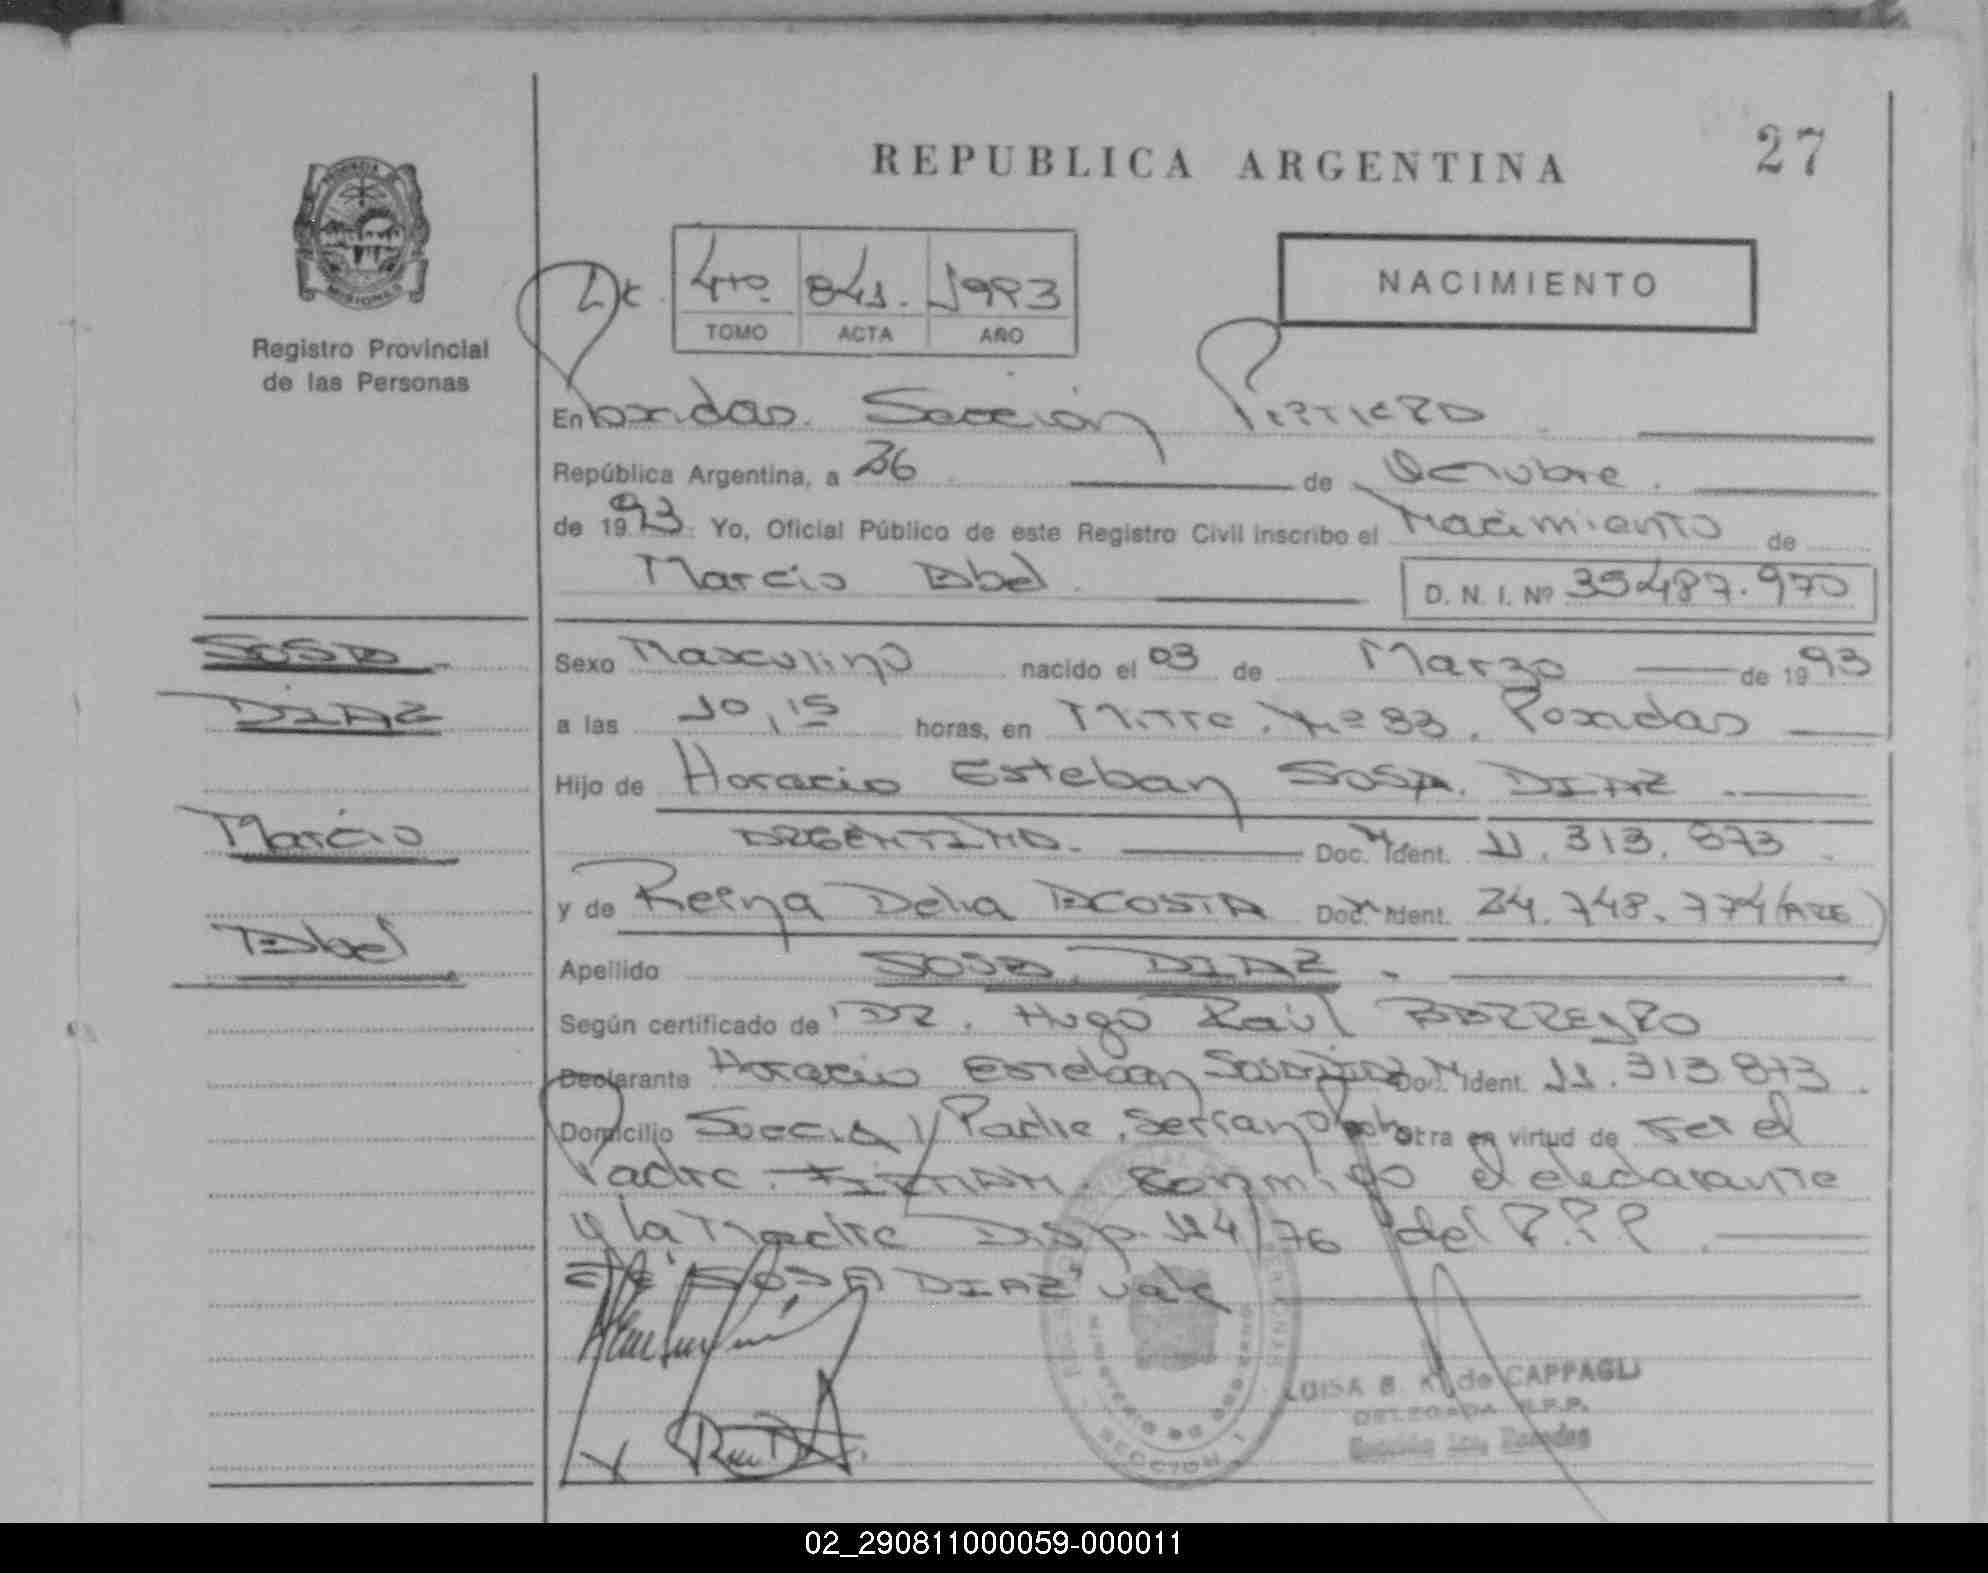 REPUBLICA ARGENTINA
27
MISIONES
Registro Provincial
de las Personas
4to. 841. 1993
TOMO ACTA AÑO
NACIMIENTO
En Posadas. Sección Primera
República Argentina, a 26 de Octubre.
de 1993 Yo, Oficial Público de este Registro Civil inscribo el Nacimiento de
Marcio Abel.
D. N. I. Nº 35487.970
SOSA
DIAZ
Marcio
Abel
Sexo Masculino nacido el 03 de Marzo de 1993
a las 10,15 horas, en Mitre. Nº 83. Posadas
Hijo de Horacio Esteban SOSA. DIAZ
ARGENTINO. Doc. Ident. 11.313.873
y de Reina Delia ACOSTA Doc. Ident. 24.748.774 (ARG)
Apellido SOSA. DIAZ.
Según certificado de DR. Hugo Raúl BARREYRO
Declarante Horacio Esteban SOSA DIAZ Doc. Ident. 11.313.873.
Domicilio Suecia y Padre Serrano obra en virtud de ser el
Padre. FIRMAN Conmigo el declarante
y la Madre Disp. 114/76 del R.P.P.
"SOSA DIAZ" vale
SECCION 1
LUISA B. K. de CAPPAGLI
DELEGADA R.P.P.
Sección 1ra. Posadas
02_290811000059-000011